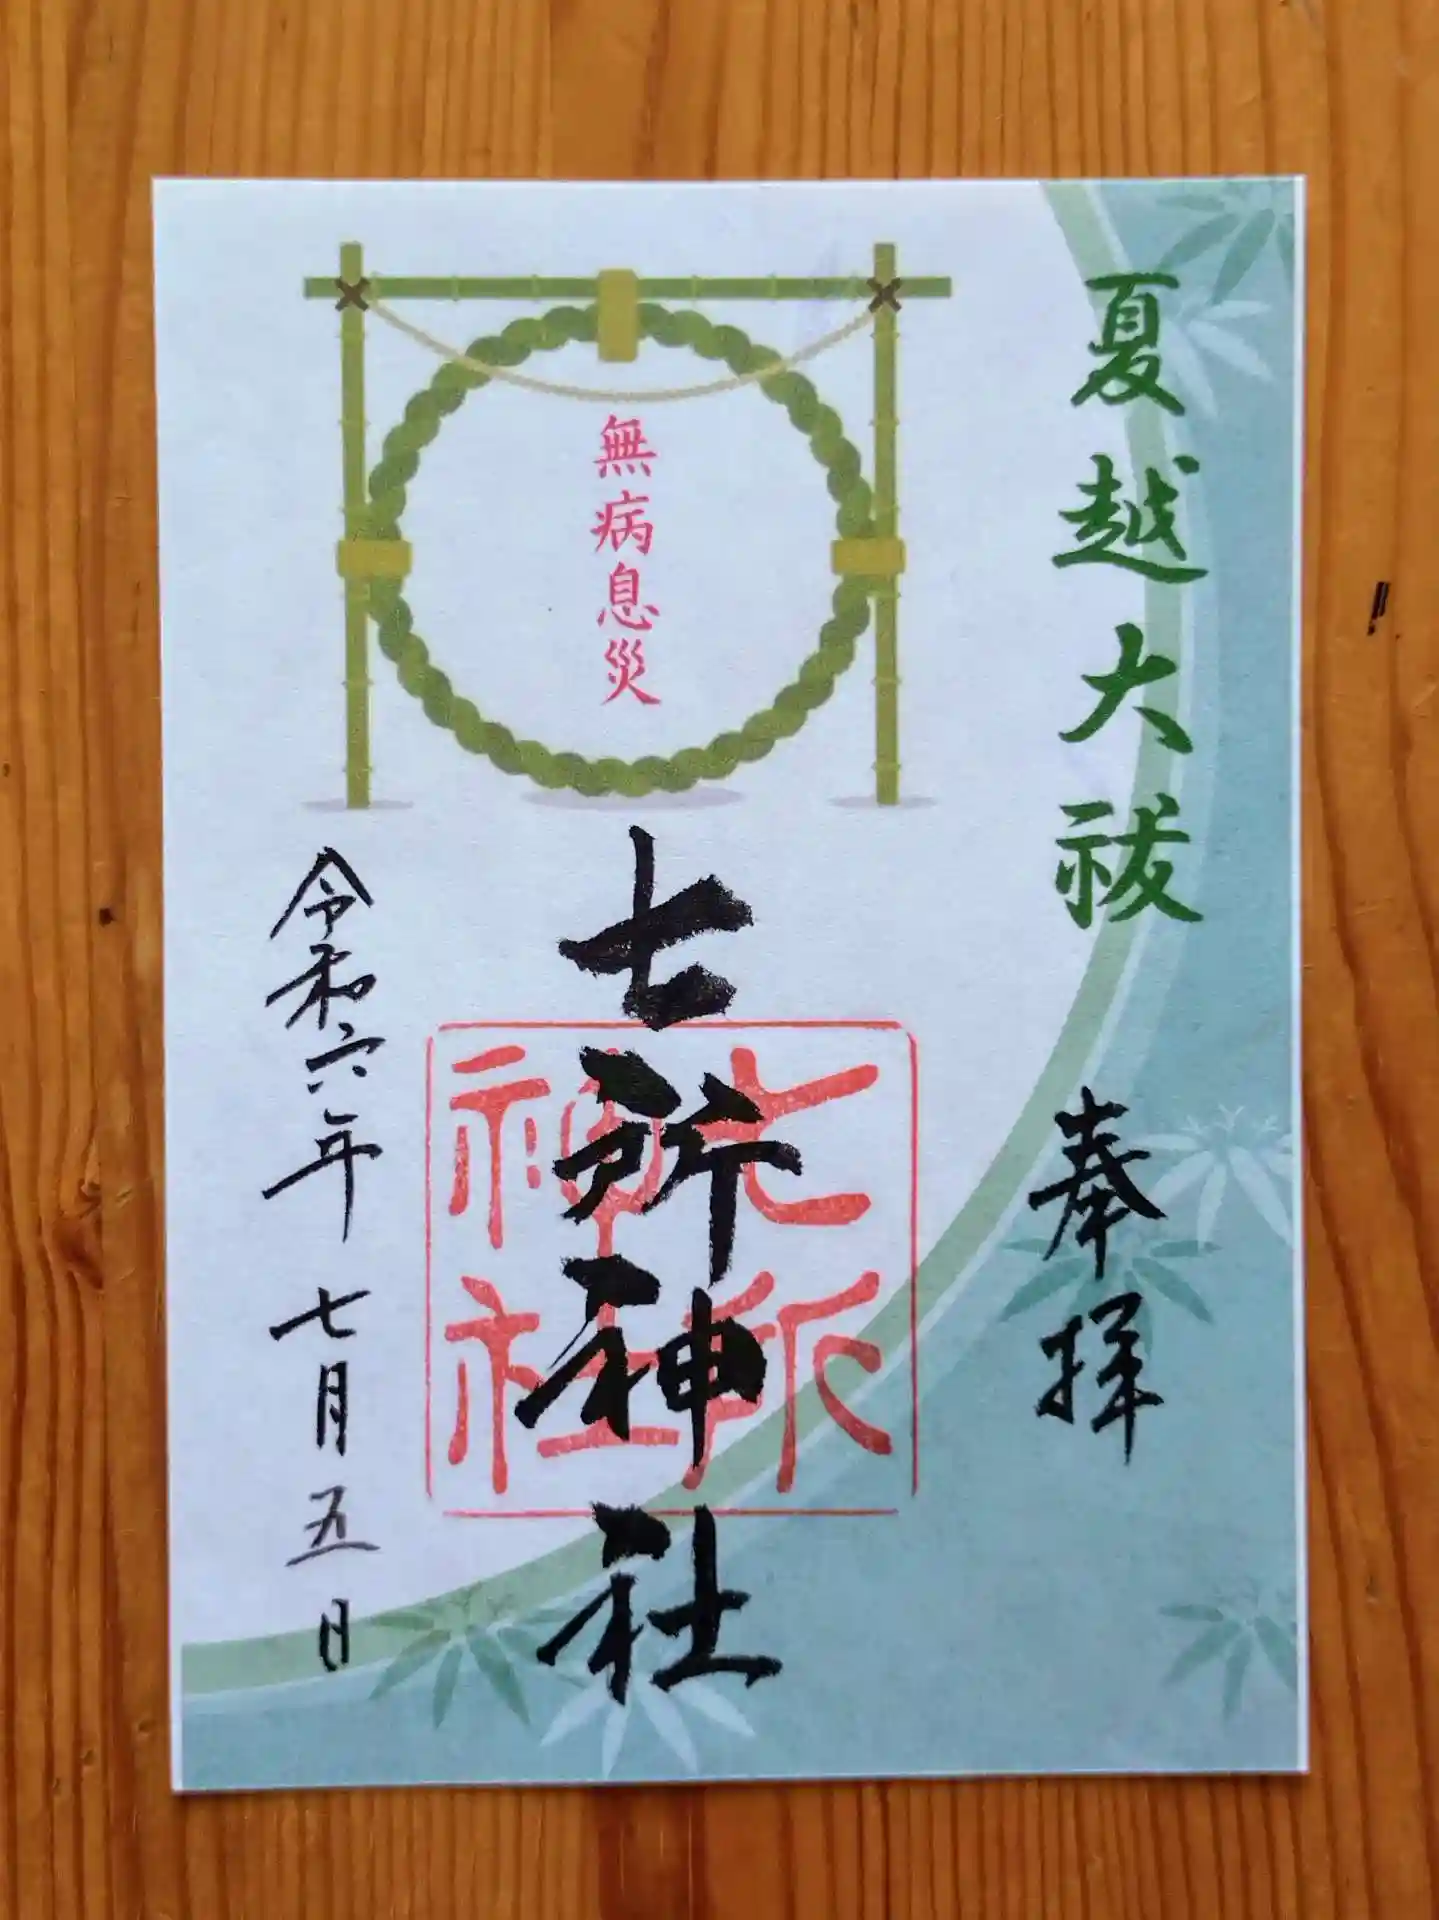 夏越大祓
奉拝
無病息災
七所神社
七所
神社
令和六年七月五日